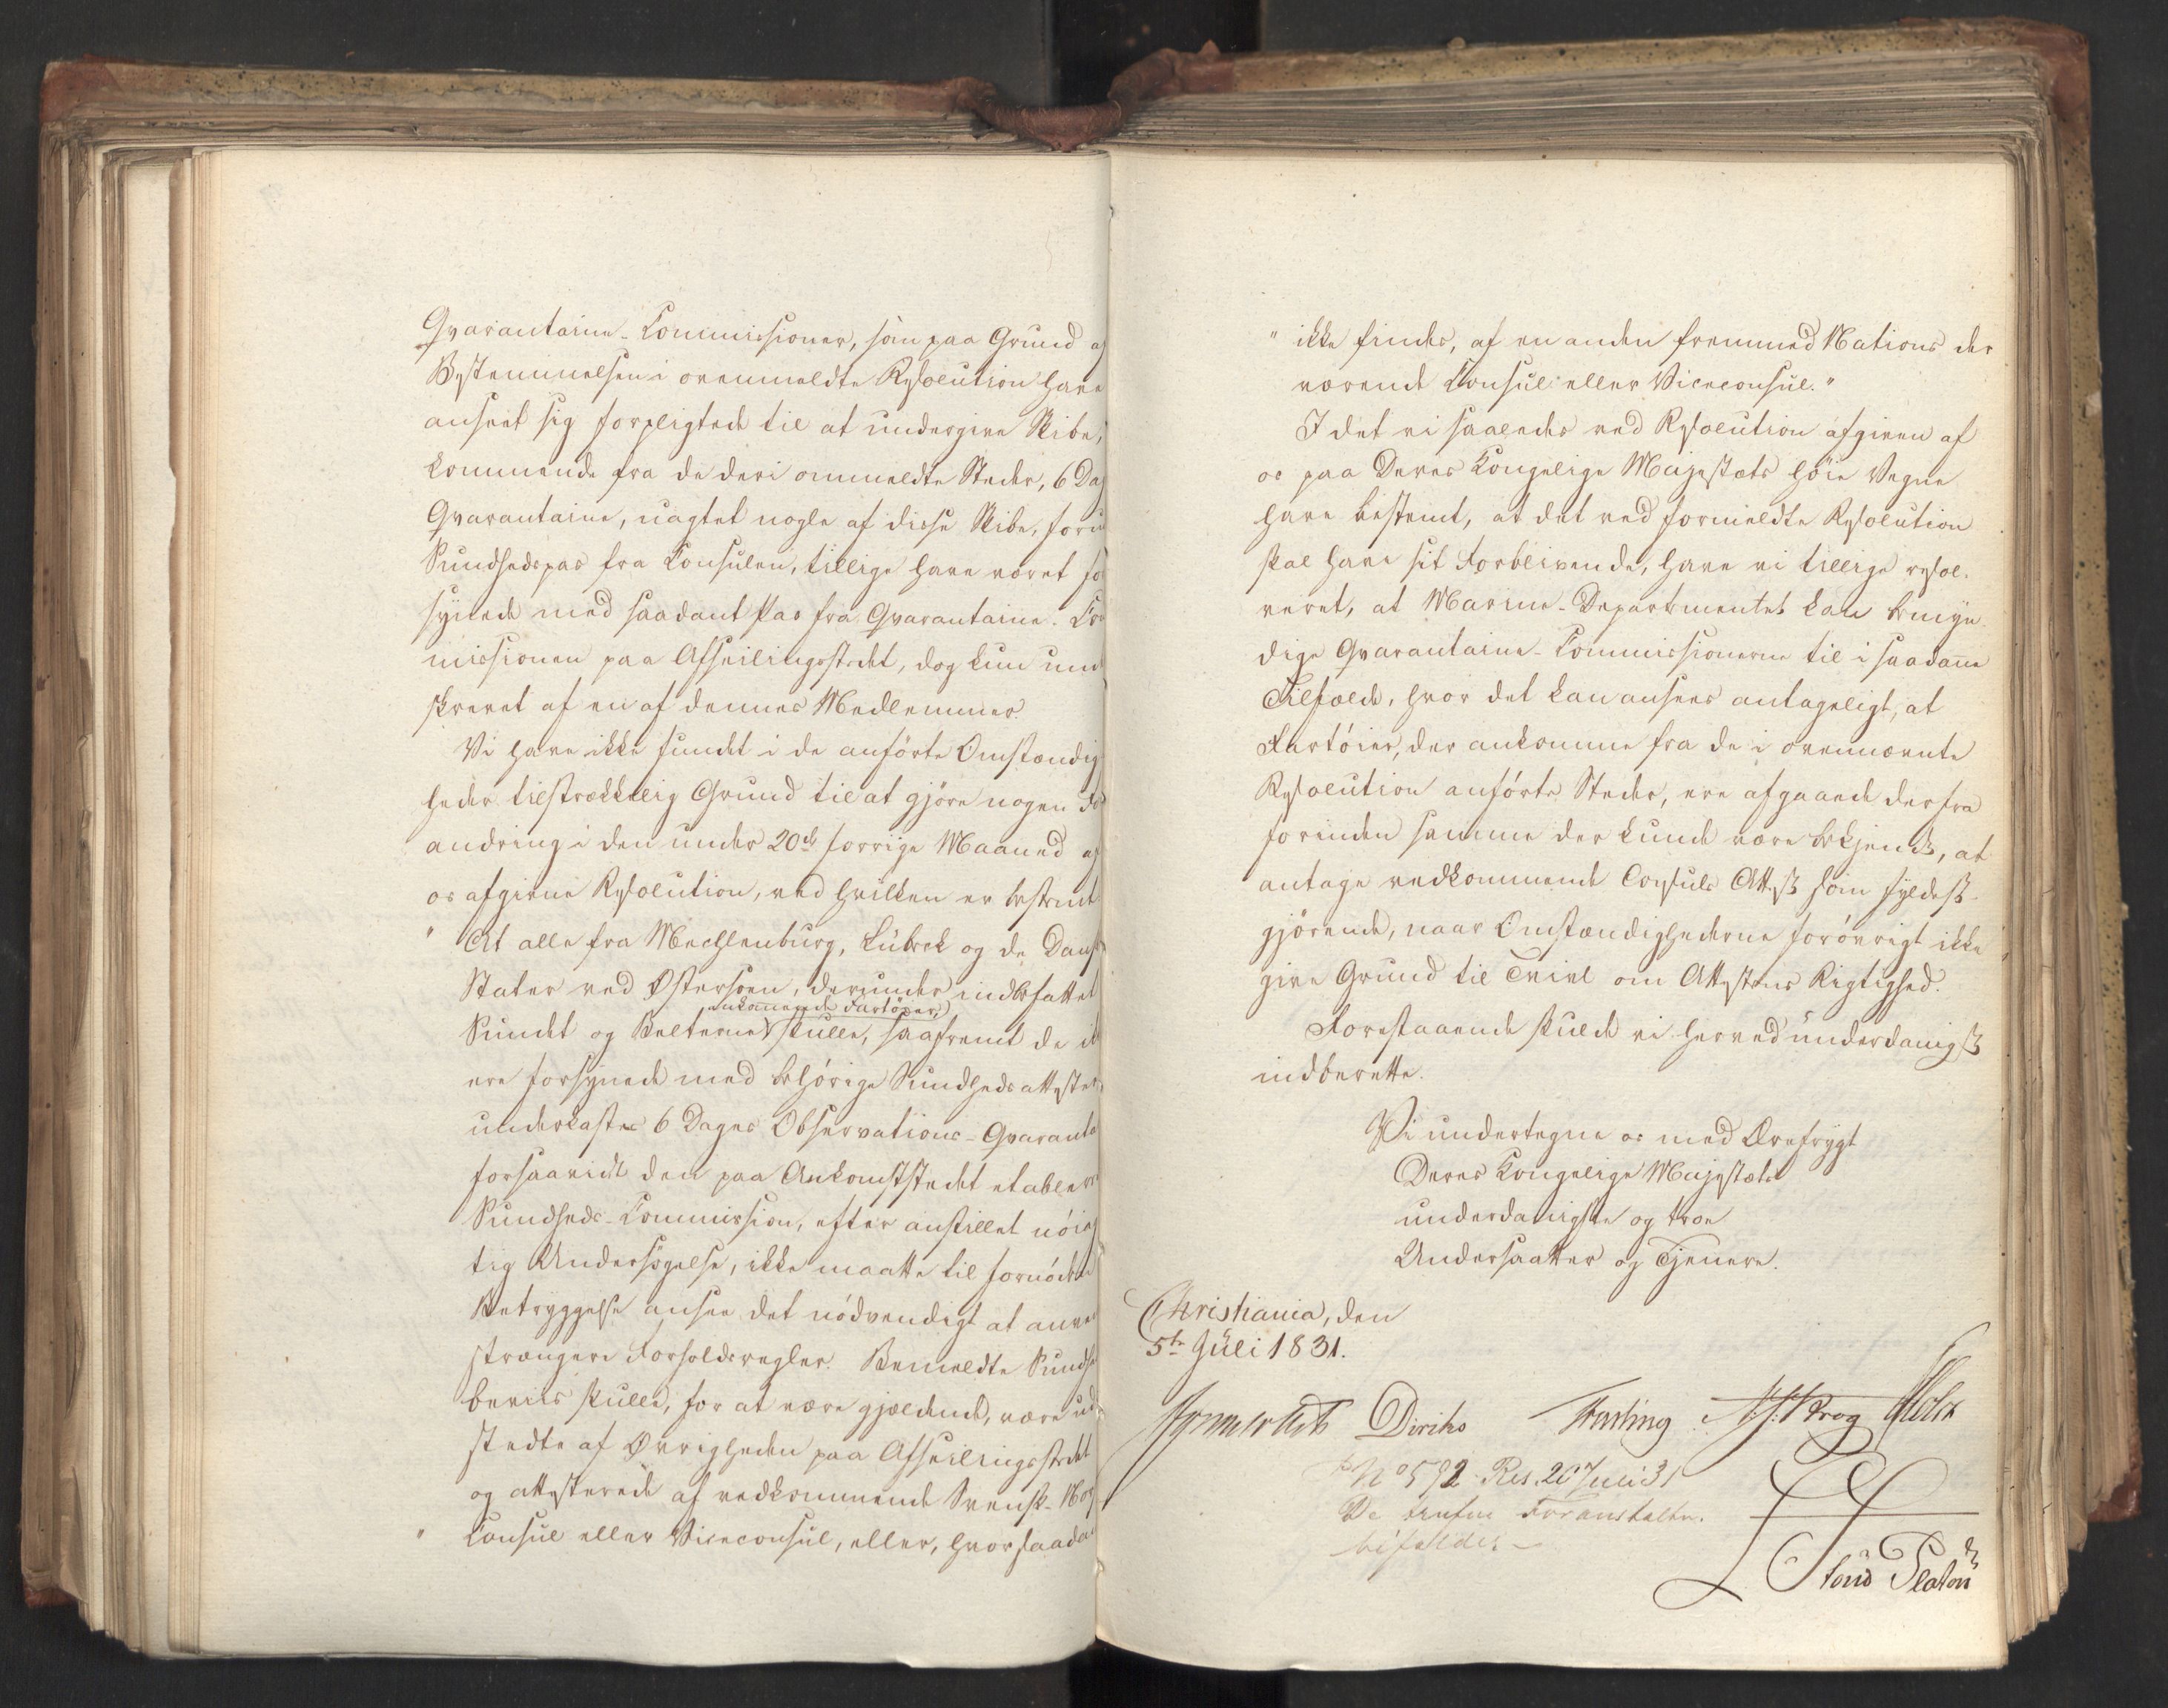 Qvarantaine-Commissioner, som paa Grund af
Bestemmelsen i ovenmeldte Resolution have
anseet sig forpligtede til at undergive Skibe,
kommende fra de deri ommeldte Steder, 6 Dag
Qvarantaine, uagtet nogle af disse Skibe, foru
Sundhedspas fra Consulen, tillige have været for
synede med saadant Pas fra Qvarantaine-Co
missionen paa Afseilingsstedet, dog kun und
skrevet af en af dennes Medlemmer.
Vi have ikke fundet i de anførte Omstændig
heder tilstrækkelig Grund til at gjøre nogen For
andring i den under 20de forrige Maaned af
os afgivne Resolution, ved hvilken er bestemt
" At alle fra Mechlenburg, Lübeck og de Danske
Stater ved Østersøen, derunder indbefattet
ankommende Fartöyer,
Sundet og Belterne skulle, saafremt de ik
ere forsynede med behörige Sundhedsattester,
underkastes 6 Dages Observations-Qvaranta
forsaavidt den paa Ankomststedet etablere
Sundheds-Commission, efter anstillet nöiag
tig Undersögelse, ikke maatte til fornöden
Betryggelse ansee det nödvendigt at anven
strængere Forholdsregler. Bemeldte Sundhe
beviis skulle, for at være gjældende, være ud
stedte af Øvrigheden paa Afseilingsstedet
og attesterede af vedkommende Svensk-Nors
" Consul eller Viceconsul, eller, hvor saadan
" ikke findes, af en anden fremmed Nations der
værende Consul eller Viceconsul."
I det vi saaledes ved Resolution afgiven af
os paa Deres Kongelige Majestæts höie Vegne
have bestemt, at det ved formeldte Resolution
skal have sit Forblivende, have vi tillige resol-
veret, at Marine-Departementet kan bemyn-
dige Qvarantaine-Commissionerne til i saadanne
Tilfælde, hvor det kan ansees antageligt, at
Fartöier, der ankomme fra de i ovennævnte
Resolution anförte Steder, ere afgaaede derfra
forinden samme der kunde være bekjendt, at
antage vedkommende Consuls Attest som fyldest-
gjörende, naar Omstændighederne forövrigt ikke
give Grund til Tvivl om Attestens Rigtighed.
Forestaaende skulde vi herved underdanigst
indberette.
Vi undertegne os med Ærefrygt
Deres Kongelige Majestæts
underdanigste og troe
Undersaatter og Tjenere.
Christiania, den
5te Juli 1831.
Diriks Fasting Krog Holst
No 592. Res. 20 Juli 31
De trufne Foranstaltn.
bifaldes